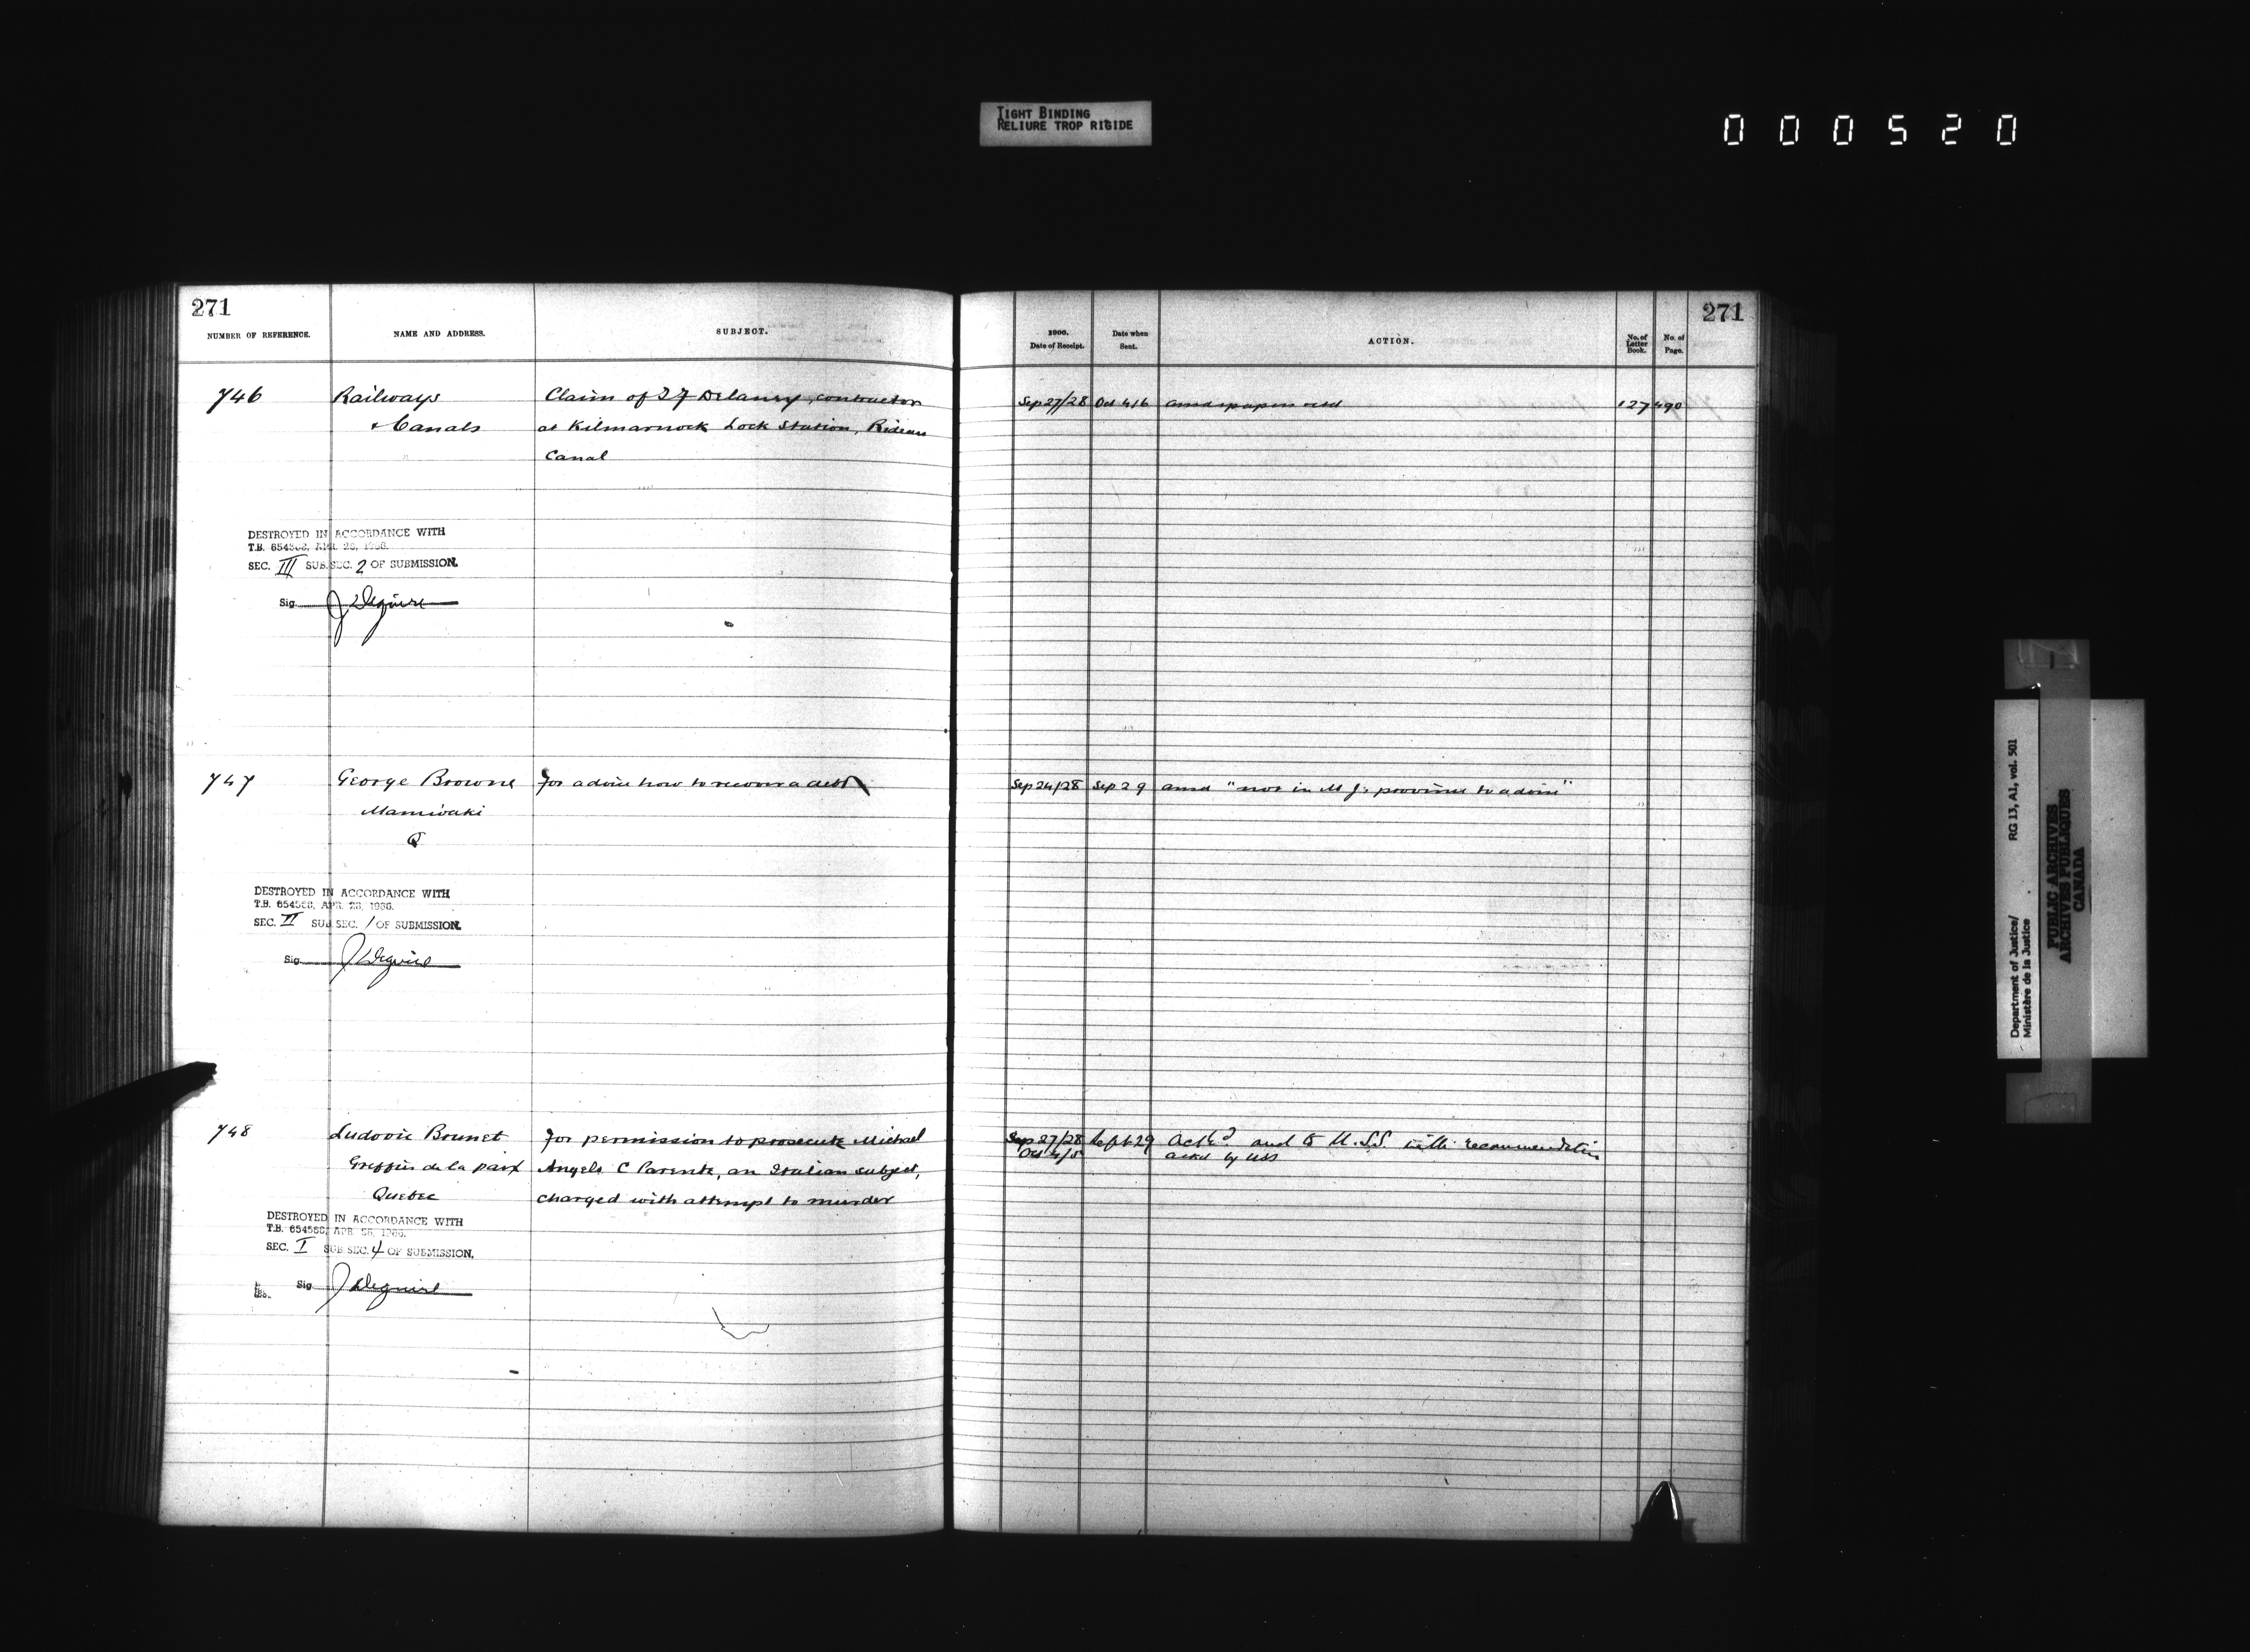 TIGHT BINDING
RELIURE TROP RIGIDE
000520
271
NUMBER OF REFERENCE. NAME AND ADDRESS. SUBJECT.
746 Railways Claim of J F Delaney, contractor
& Canals at Kilmarnock Lock Station, Rideau
Canal
DESTROYED IN ACCORDANCE WITH
T.B. 654568, APR. 28, 1966.
SEC. III SUB. SEC. 2 OF SUBMISSION.
Sig. J Deguire
747 George Browne For advice how to recover a debt
Maniwaki
Q
DESTROYED IN ACCORDANCE WITH
T.B. 654568, APR. 28, 1966.
SEC. II SUB. SEC. 1 OF SUBMISSION.
Sig. J Deguire
748 Ludovic Brunet For permission to prosecute Michael
Greffier de la paix Angelo C Parente, an Italian subject,
Quebec charged with attempt to murder
DESTROYED IN ACCORDANCE WITH
T.B. 654568, APR. 28, 1966.
SEC. I SUB. SEC. 4 OF SUBMISSION.
Sig. J Deguire
271
1900.
Date of Receipt. Date when
Sent. ACTION. No. of
Letter
Book. No. of
Page.
Sep 27/28 Oct 4/6 ansd papers retd 127 490
Sep 24/28 Sep 29 ansd "not in M J's province to advise"
Sep 27/28 Sept 29 Ackd and to U.S.S. with recommendation
Oct 4/5 ackd by USS
Department of Justice/ RG 13, A1, vol. 501
Ministère de la Justice
PUBLIC ARCHIVES
ARCHIVES PUBLIQUES
CANADA